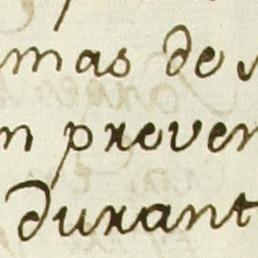 mas de
n preven
durant